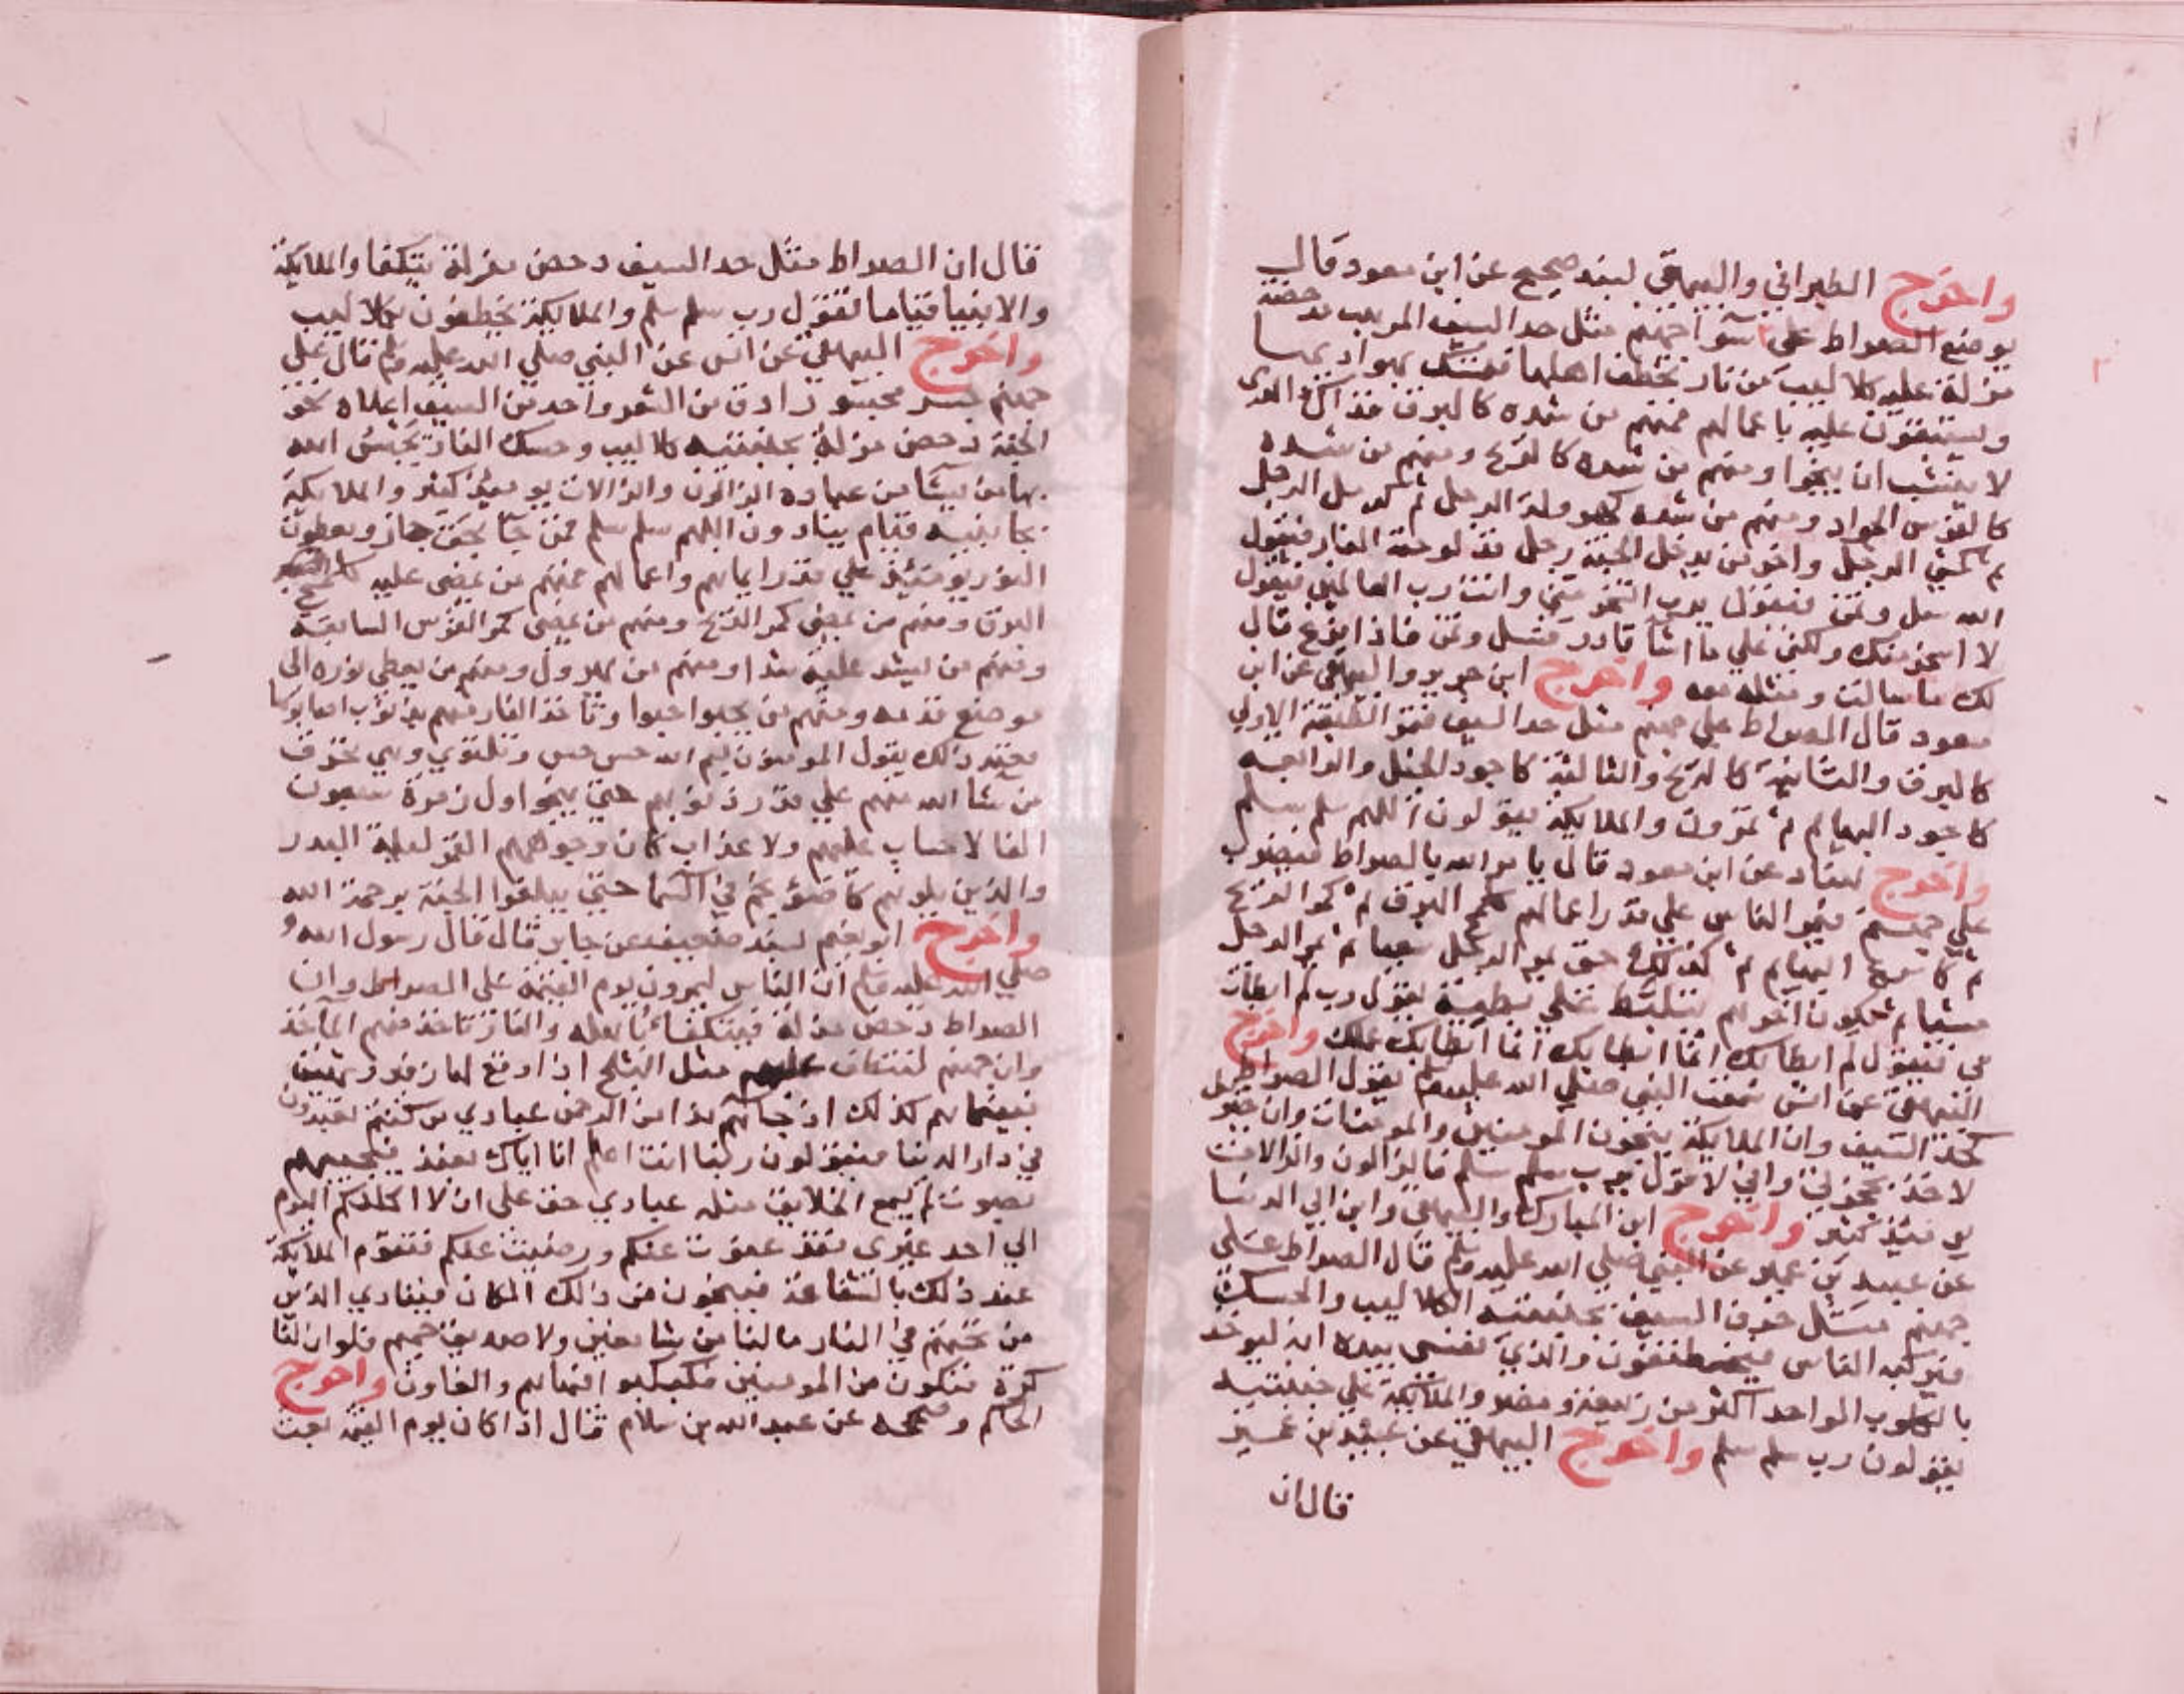 واخرج الطبراني والبيهقي بسند صحيح عن ابن مسعود قال
يوضع الصراط على سوا جهنم مثل حد السيف المرهف مدحضة
مزلة عليه كلاليب من نار تخطف اهلها فتمسك بهواديها
ويستبقون عليه باعمالهم فمنهم من شده كالبرق فذاك الذي
لا ينشب ان ينجوا ومنهم من شده كالريح ومنهم من شده
كالفرس الجواد ومنهم من شده كهرولة الرجل ثم كرمل الرجل
ثم كمشي الرجل واخر من يدخل الجنة رجل قد لوحته النار فيقول
الله سل وتمن فيقول يارب اتسخر مني وانت رب العالمين فيقول
لا اسخر منك ولكني على ما اشا قادر فسل وتمن فاذا فرغ قال
لك ما سالت ومثله معه واخرج ابن جرير والبيهقي عن ابن
مسعود قال الصراط على جهنم مثل حد السيف فتمر الطبقة الاولى
كالبرق والثانية كالريح والثالثة كاجود الخيل والرابعة
كاجود البهايم ثم يمرون والملايكة يقولون اللهم سلم سلم
واخرج هناد عن ابن مسعود قال يامر الله بالصراط فيضرب
على جهنم فيمر الناس على قدر اعمالهم كلمح البرق ثم كمر الريح
ثم كاسرع البهايم ثم كذلك حتى يمر الرجل سعيا ثم يمر الرجل
مشيا ثم يكون اخرهم يتلبط على بطنه يقول رب لم ابطات
بي فيقول لم ابطا بك انما ابطا بك عملك واخرج
البيهقي عن انس سمعت النبي صلى الله عليه وسلم يقول الصراط
كحد السيف وان الملايكة ينجون المومنين والمومنات وان جبريل
لاخذ بحجزتي واني لاقول يارب سلم سلم فالزالون والزالات
يوميذ كثير واخرج ابن المبارك والبيهقي وابن ابي الدنيا
عن عبيد بن عمير عن النبي صلى الله عليه وسلم قال الصراط على
جهنم مثل حرف السيف بجنبتيه الكلاليب والحسك
فيركبه الناس فيختطفون والذي نفسي بيده انه ليوخذ
بالكلوب الواحد اكثر من ربيعة ومضر والملايكة على جنبتيه
يقولون رب سلم سلم واخرج البيهقي عن عبيد بن عمير
قال ان
قال ان الصراط مثل حد السيف دحض مزلة يتكفا والملايكة
والانبيا قياما تقول رب سلم سلم والملايكة تخطفون بكلاليب
واخرج البيهقي عن انس عن النبي صلى الله عليه وسلم قال على
جهنم جسر ادق من الشعر واحد من السيف اعلاه نحو
الجنة دحض مزلة بجنبتيه كلاليب وحسك النار يحبس الله
بها من يشا من عباده الزالون والزالات يوميذ كثير والملايكة
بجانبيه قيام ينادون اللهم سلم سلم فمن جا بحق جاز ويعطون
النور يوميذ على قدر ايمانهم واعمالهم فمنهم من يمضي عليه كلمح
البرق ومنهم من يمضي كمر الريح ومنهم من يمضي كمر الفرس السابقة
ومنهم من يشد عليه شدا ومنهم من يهرول ومنهم من يعطى نوره الى
موضع قدمه ومنهم من يحبوا حبوا وتاخذ النار منهم بذنوب اصابوها
فعند ذلك يقول المومنون بسم الله حس حس وتلتوي وهي تحرق
من شا الله منهم على قدر ذنوبهم حتى ينجو اول زمرة سبعون
الفا لا حساب عليهم ولا عذاب كان وجوههم القمر ليلة البدر
والذين يلونهم كاضوء نجم في السما حتى يبلغوا الجنة برحمة الله
واخرج ابو نعيم بسند ضعيف عن جابر قال قال رسول الله
صلى الله عليه وسلم ان الناس ليمرون يوم القيمة على الصراط وان
الصراط دحض مزلة فيتكفا باهله والنار تاخذ منهم الماخذ
وان جهنم لتنتطف عليهم مثل الثلج اذا وقع لها زفير وشهيق
فبينما هم كذلك اذ جاهم ندا من الرحمن عبادي من كنتم تعبدون
في دار الدنيا فيقولون ربنا انت اعلم انا اياك نعبد فيجيبهم
بصوت لم يسمع الخلايق مثله عبادي حق علي ان لا اكلكم اليوم
الى احد غيري فقد عفوت عنكم ورضيت عنكم فتقوم الملايكة
عند ذلك بالشفاعة فينجون من ذلك المكان فينادي الذين
من تحتهم في النار ما لنا من شافعين ولا صديق حميم فلو ان لنا
كرة فنكون من المومنين فكبكبو فيها هم والغاون واخرج
الحاكم وصححه عن عبد الله بن سلام قال اذا كان يوم القيمة بعث